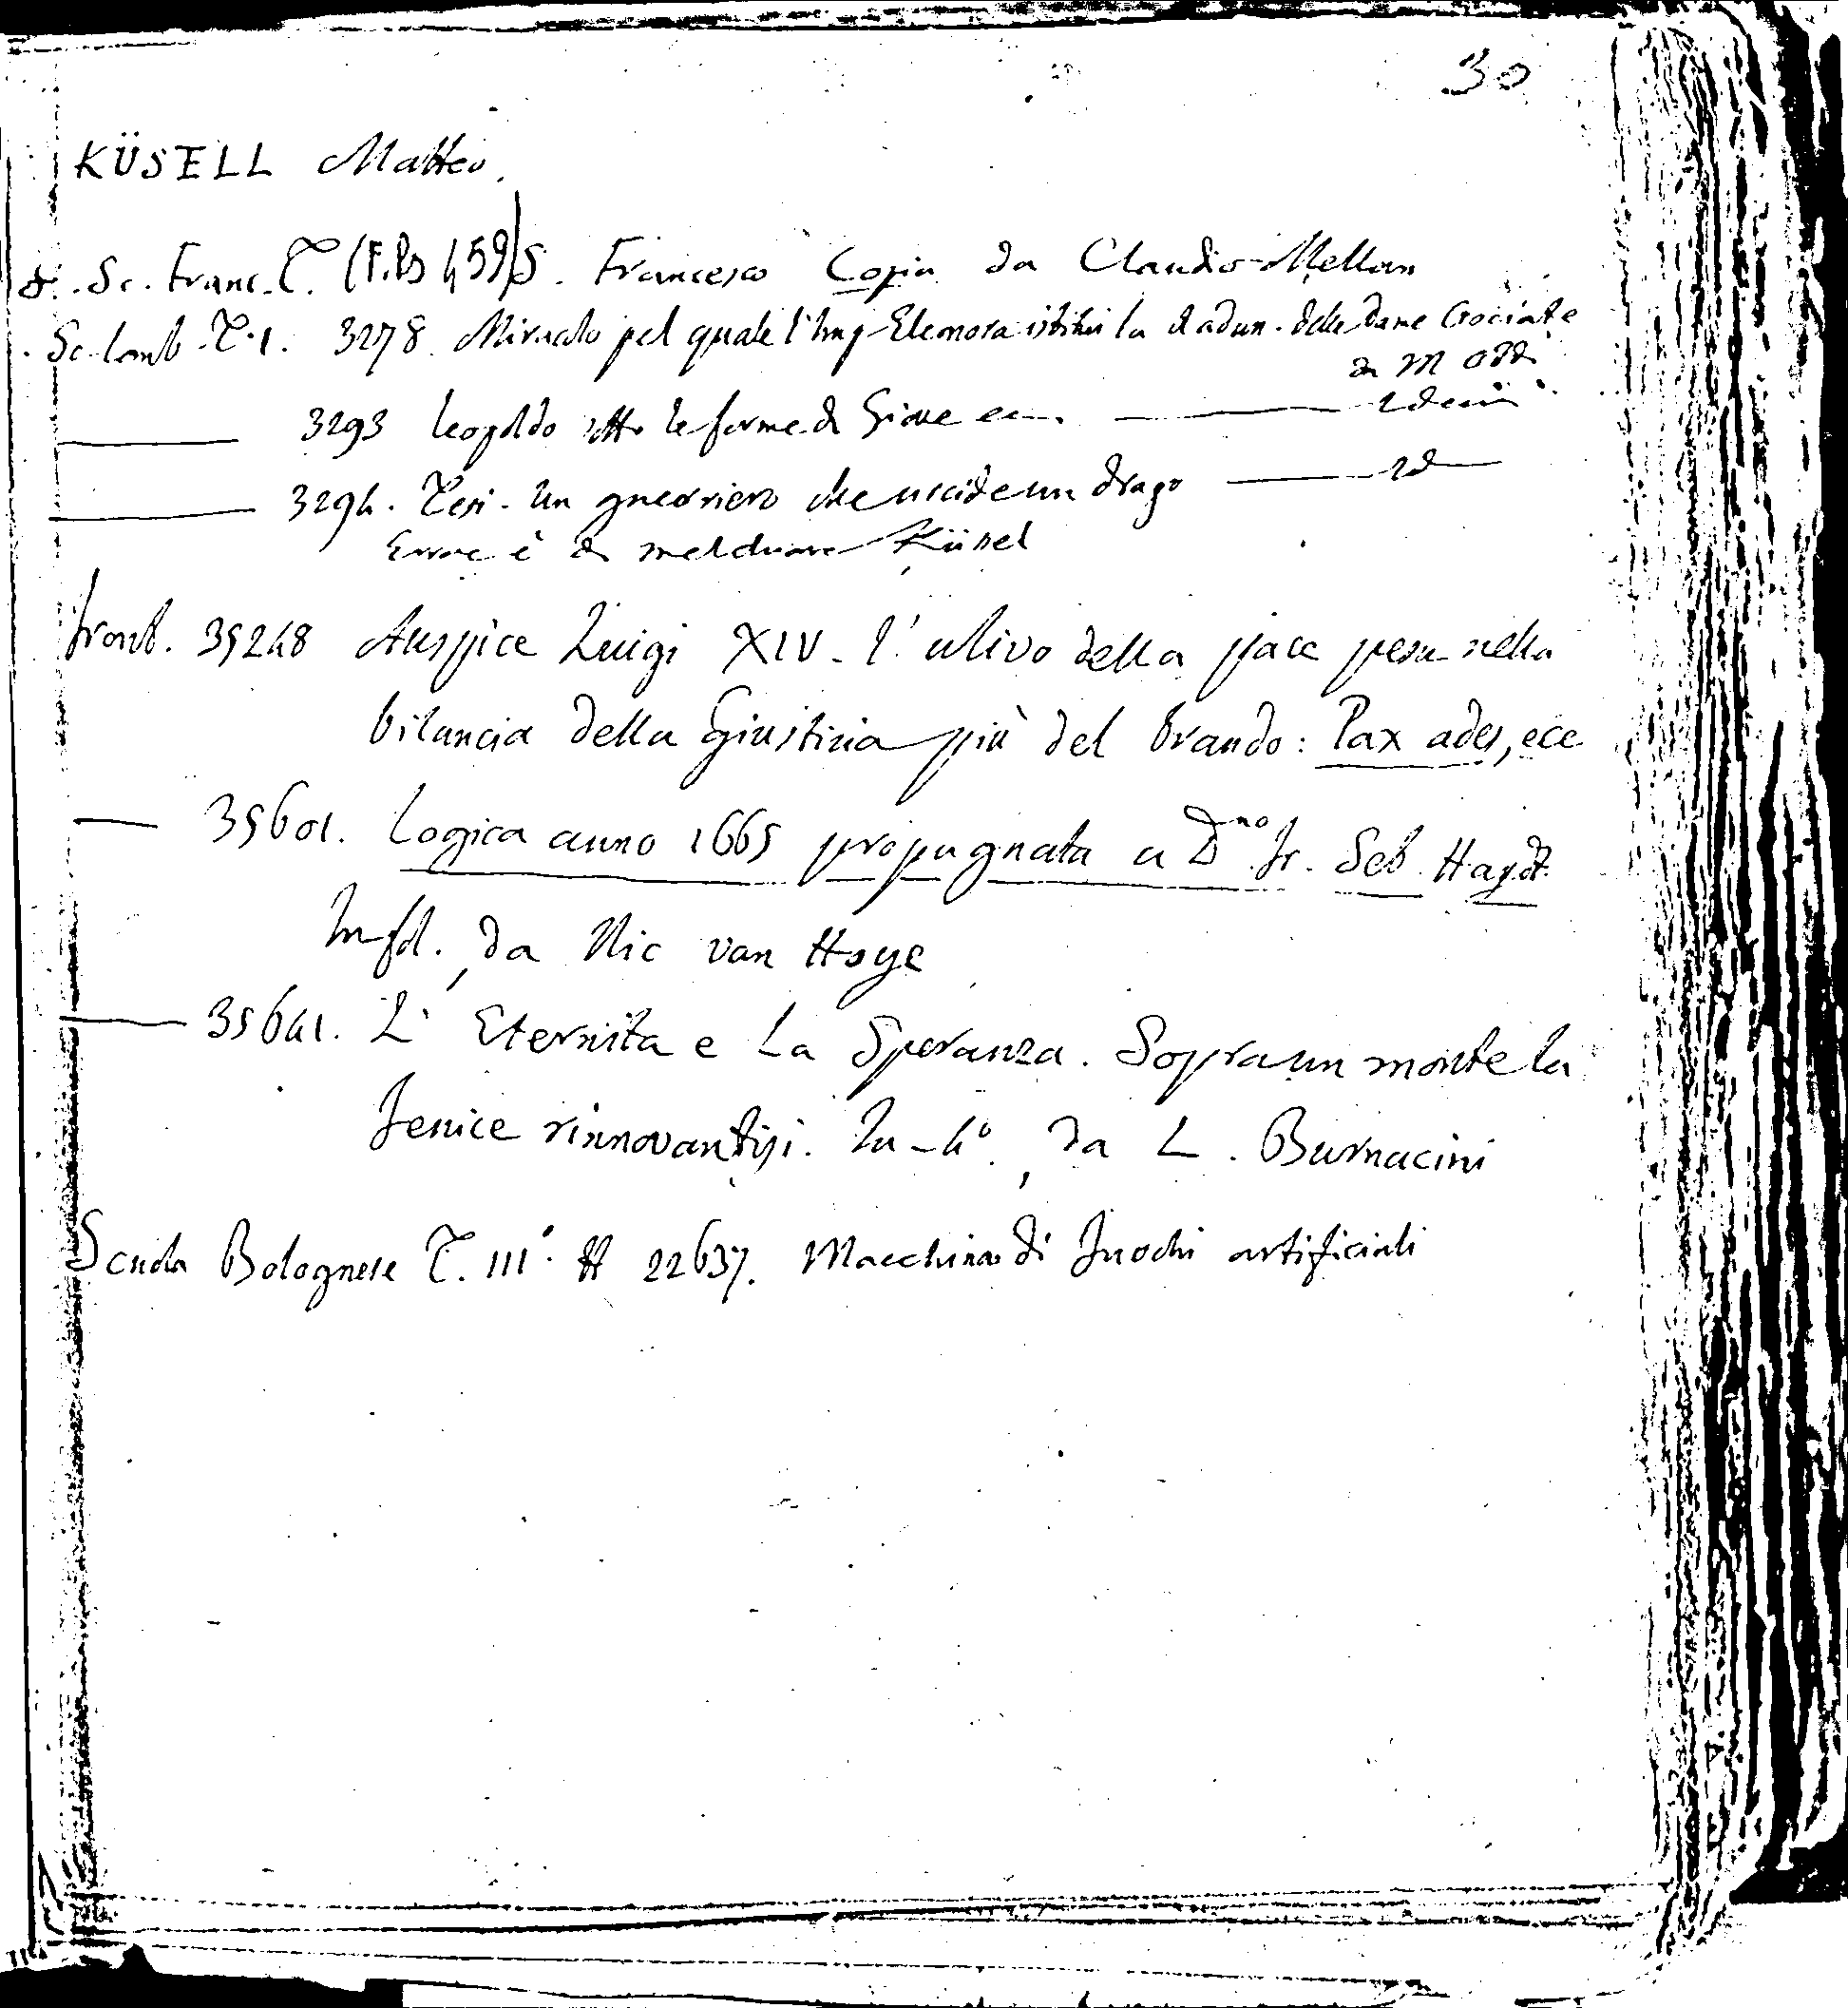 30
KÜSELL Matteo.
Sc. Franc. T. (F.B 459) S. Francesco Copia da Claudio Mellan
Sc. Lomb. T. 1. 3278. Miracolo pel quale l'Imp Eleonora istituì la Radun. delle Dame Crociate
da M Oddi
3293 Leopoldo sotto le forme di Giove ec. idem
3294. Tesi. Un guerriero che uccide un drago id
Errore è di Melchiore Küsel
Front. 35248 Auspice Luigi XIV. l'ulivo della pace pesa nella
bilancia della Giustizia più del brando: Pax ades, ecc
35601. Logica anno 1665 propugnata a Dno Fr. Seb. Haydt.
In fol. da Nic van Hoye
35641. L'Eternita e La Speranza. Sopra un monte la
fenice rinnovantisi. In-4°. da L. Burnacini
Scuola Bolognese T. III°. # 22637. Macchina di fuochi artificiali